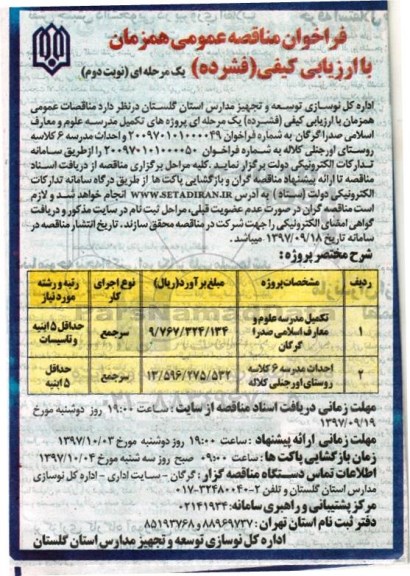 فراخوان مناقصه عمومی همزمان
با ارزیابی کیفی (فشرده) یک مرحله ای (نوبت دوم)
اداره کل نوسازی توسعه و تجهیز مدارس استان گلستان درنظر دارد مناقصات عمومی
همزمان با ارزیابی کیفی (فشرده) یک مرحله ای پروژه های تکمیل مدرسه علوم و معارف
اسلامی صدرا گرگان به شماره فراخوان ۲۰۰۹۷۰۱۰۱۰۰۰۰۴۹ و احداث مدرسه ۶ کلاسه
روستای اورجنلی کلاله به شماره فراخوان ۲۰۰۹۷۰۱۰۱۰۰۰۰۵۰ را از طریق سامانه
تدارکات الکترونیکی دولت برگزار نماید. کلیه مراحل برگزاری مناقصه از دریافت اسناد
مناقصه تا ارائه پیشنهاد مناقصه گران و بازگشایی پاکت ها از طریق درگاه سامانه تدارکات
الکترونیکی دولت (ستاد) به آدرس WWW.SETADIRAN.IR انجام خواهد شد و لازم
است مناقصه گران در صورت عدم عضویت قبلی، مراحل ثبت نام در سایت مذکور و دریافت
گواهی امضای الکترونیکی را جهت شرکت در مناقصه محقق سازند. تاریخ انتشار مناقصه در
سامانه تاریخ ۱۳۹۷/۰۹/۱۸ میباشد.
شرح مختصر پروژه:
ردیف مشخصات پروژه مبلغ برآورد (ریال) نوع اجرای کار رتبه و رشته مورد نیاز
۱ تکمیل مدرسه علوم و معارف اسلامی صدرا گرگان ۹/۷۶۷/۳۲۴/۱۳۴ سرجمع حداقل ۵ ابنیه و تاسیسات
۲ احداث مدرسه ۶ کلاسه روستای اورجنلی کلاله ۱۳/۵۹۶/۲۷۵/۵۳۲ سرجمع حداقل ۵ ابنیه
مهلت زمانی دریافت اسناد مناقصه از سایت: ساعت ۱۹:۰۰ روز دوشنبه مورخ
۱۳۹۷/۰۹/۱۹
مهلت زمانی ارائه پیشنهاد: ساعت ۱۹:۰۰ روز دوشنبه مورخ ۱۳۹۷/۱۰/۰۳
زمان بازگشایی پاکت ها: ساعت ۰۹:۰۰ صبح روز سه شنبه مورخ ۱۳۹۷/۱۰/۰۴
اطلاعات تماس دستگاه مناقصه گزار: گرگان - سایت اداری - اداره کل نوسازی
مدارس استان گلستان و تلفن ۲-۰۱۷-۳۲۴۸۰۰۴۰
مرکز پشتیبانی و راهبری سامانه: ۰۲۱۴۱۹۳۴
دفتر ثبت نام استان تهران: ۸۸۹۶۹۷۳۷ و ۸۵۱۹۳۷۶۸
اداره کل نوسازی توسعه و تجهیز مدارس استان گلستان